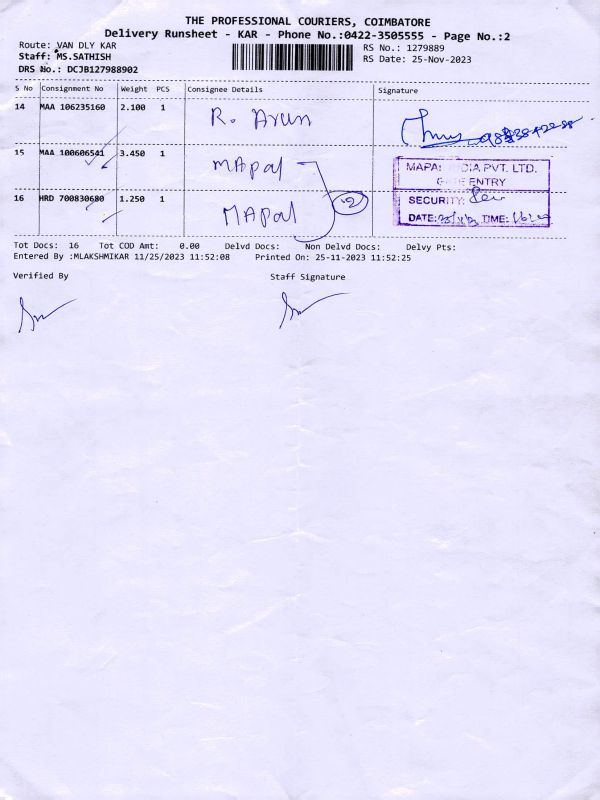 THE PROFESSIONAL COURIERS, COIMBATORE
Delivery Runsheet - KAR - Phone No.:0422-3505555 - Page No.:2
Route: VAN DLY KAR
RS No.: 1279889
Staff: MS.SATHISH
RS Date: 25-Nov-2023
DRS No.: DCJB127988902
S No Consignment No Weight PCS Consignee Details Signature
14 MAA 106235160 2.100 1 R. Arun
15 MAA 100606541 3.450 1 MApal
MAPAL INDIA PVT. LTD.
GATE ENTRY
16 HRD 700830680 1.250 1 MApal 2
SECURITY:
DATE: TIME:
Tot Docs: 16 Tot COD Amt: 0.00 Delvd Docs: Non Delvd Docs: Delvy Pts:
Entered By :MLAKSHMIKAR 11/25/2023 11:52:08 Printed On: 25-11-2023 11:52:25
Verified By Staff Signature